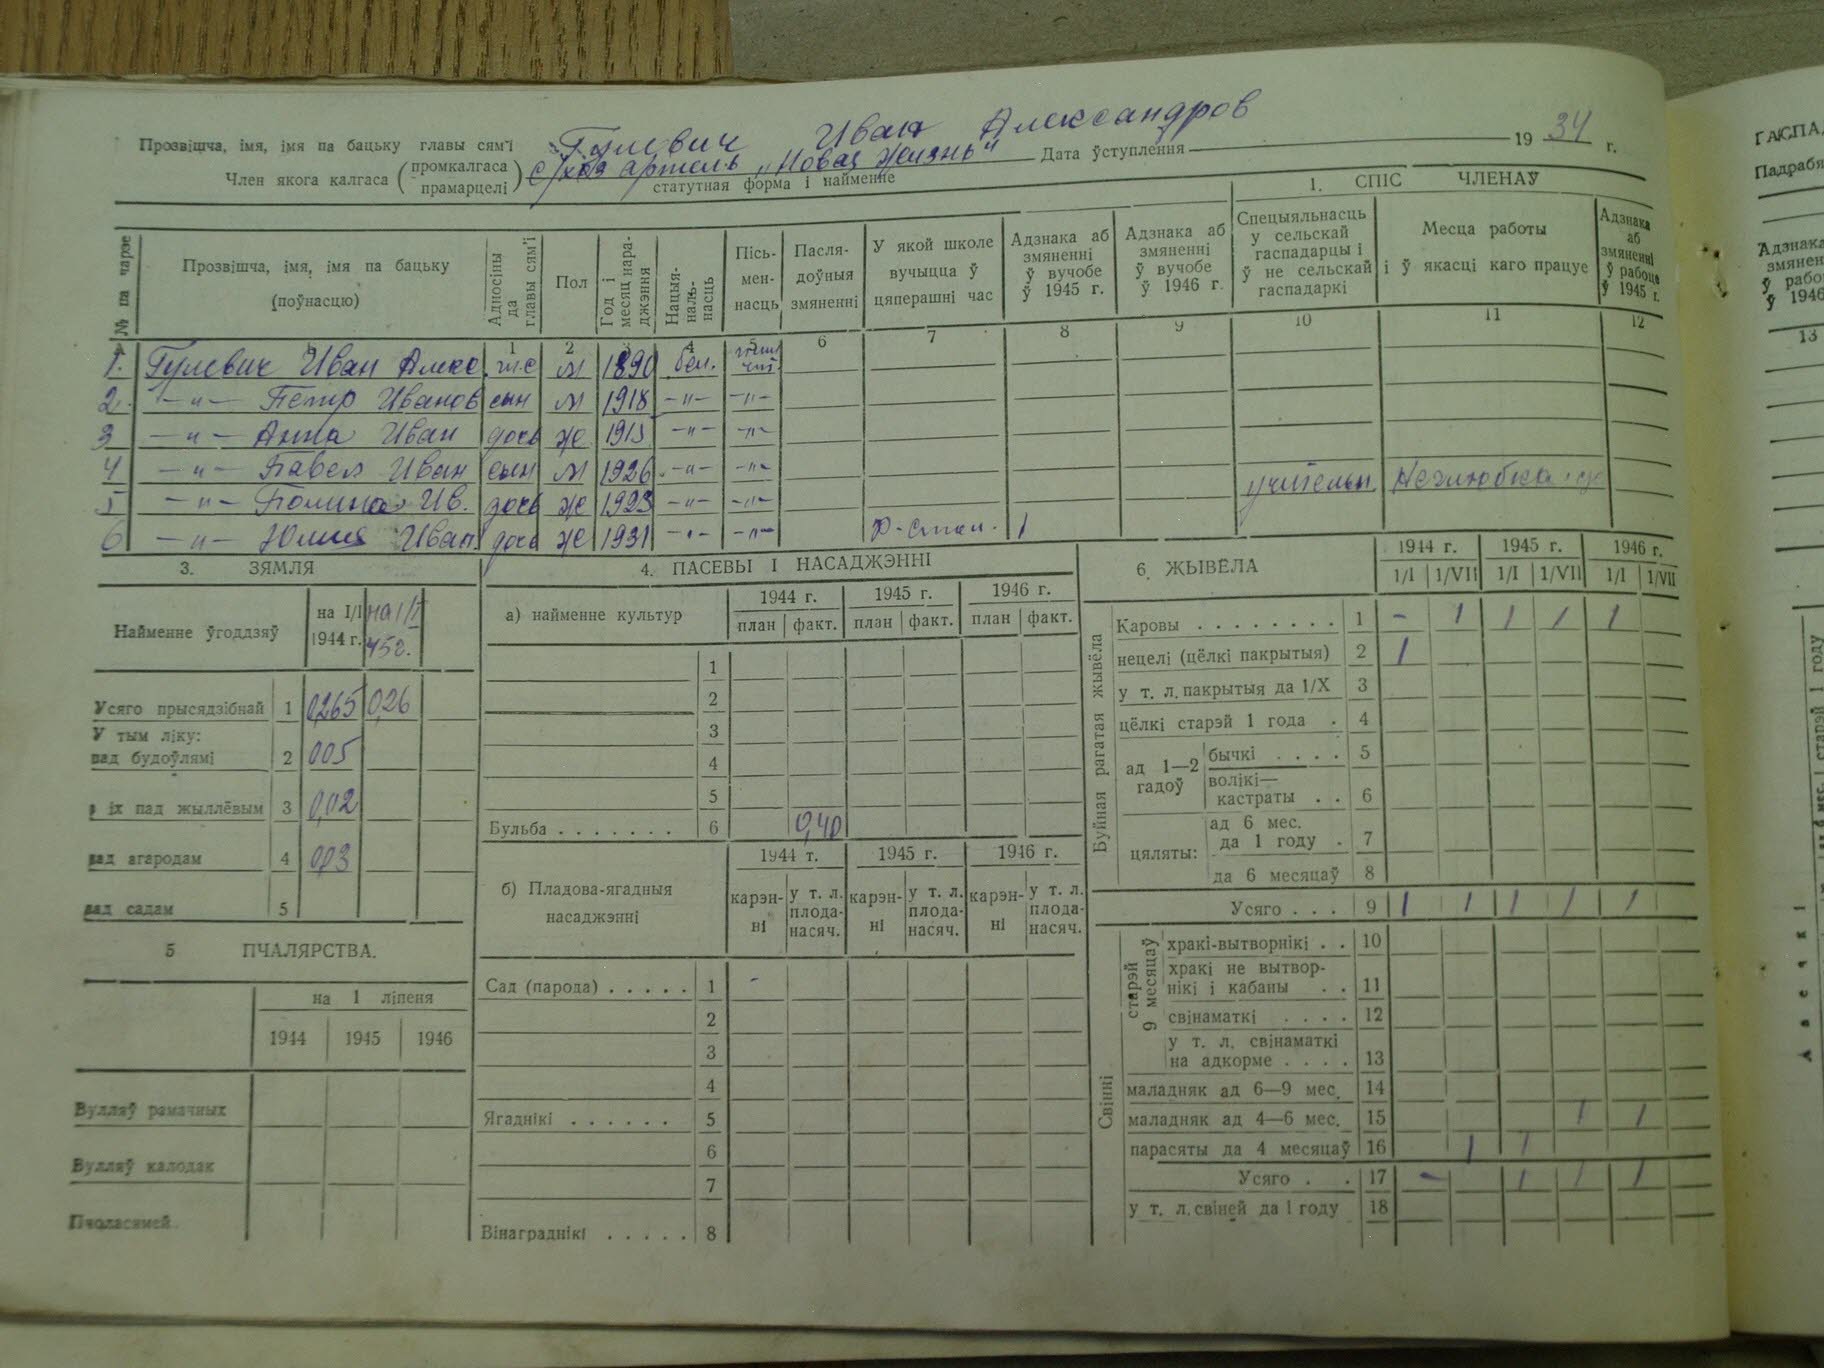 Прозвішча, імя, імя па бацьку главы сям'і Гулевич Иван Александров
Член якога калгаса (промкалгаса прамарцелі) с/хоз артель „Новая Жизнь" Дата ўступлення 1934 г.
статутная форма і найменне
1. СПІС ЧЛЕНАЎ
№ па чарзе
Прозвішча, імя, імя па бацьку (поўнасцю)
Адносіны да главы сям'і
Пол
Год і месяц нараджэння
Нацыянальнасць
Пісьменнасць
Паслядоўныя змяненні
У якой школе вучыцца ў цяперашні час
Адзнака аб змяненні ў вучобе ў 1945 г.
Адзнака аб змяненні ў вучобе ў 1946 г.
Спецыяльнасць у сельскай гаспадарцы і ў не сельскай гаспадаркі
Месца работы і ў якасці каго працуе
Адзнака аб змяненні ў рабоце ў 1945 г.
1 2 3 4 5 6 7 8 9 10 11 12
1. Гулевич Иван Алекс. г.с м 1890 бел.
2. -"- Петр Иванов сын м 1918 -"- -"-
3 -"- Анна Иван дочь ж -"- -"-
4 -"- Павел Иван сын м 1926 -"- -"-
5 -"- Полина Ив. дочь ж 1923 -"- -"-
6 -"- Юлия Иван. дочь ж 1931 -"- -"-
3. ЗЯМЛЯ
Найменне ўгоддзяў на I/I 1944 г. на I/I 45г.
Усяго прысядзібнай 1 0,265 0,26
У тым ліку:
пад будоўлямі 2 005
з іх пад жыллёвым 3 0,02
пад агародам 4
пад садам 5
5 ПЧАЛЯРСТВА.
на 1 ліпеня
1944 1945 1946
Вулляў рамачных
Вулляў калодак
Пчоласямей
4. ПАСЕВЫ І НАСАДЖЭННІ
а) найменне культур 1944 г. 1945 г. 1946 г.
план факт. план факт. план факт.
1
2
3
4
5
Бульба . . . . . . . 6 0,40
б) Пладова-ягадныя насаджэнні 1944 г. 1945 г. 1946 г.
карэнні у т. л. плоданасяч. карэнні у т. л. плоданасяч. карэнні у т. л. плоданасяч.
Сад (парода) . . . . . 1 -
2
3
4
Ягаднікі . . . . . . 5
6
7
Вінаграднікі . . . . . 8
6. ЖЫВЁЛА 1944 г. 1945 г. 1946 г.
1/I 1/VII 1/I 1/VII 1/I 1/VII
Буйная рагатая жывёла
Каровы . . . . . . . . 1 - 1 1 1 1
нецелі (цёлкі пакрытыя) 2 1
у т. л. пакрытыя да 1/X 3
цёлкі старэй 1 года . 4
ад 1—2 гадоў
бычкі . . . . 5
волікі—кастраты . . 6
цяляты:
ад 6 мес. да 1 году . 7
да 6 месяцаў 8
Усяго . . . 9 1 1 1 1 1
Свінні
старэй 9 месяцаў
хракі-вытворнікі . . 10
хракі не вытворнікі і кабаны . . 11
свінаматкі . . . . 12
у т. л. свінаматкі на адкорме . . . . 13
маладняк ад 6—9 мес. 14
маладняк ад 4—6 мес. 15 1 1
парасяты да 4 месяцаў 16 1 1
Усяго . . 17 - 1 1 1
у т. л. свіней да 1 году 18
Адзнака
13